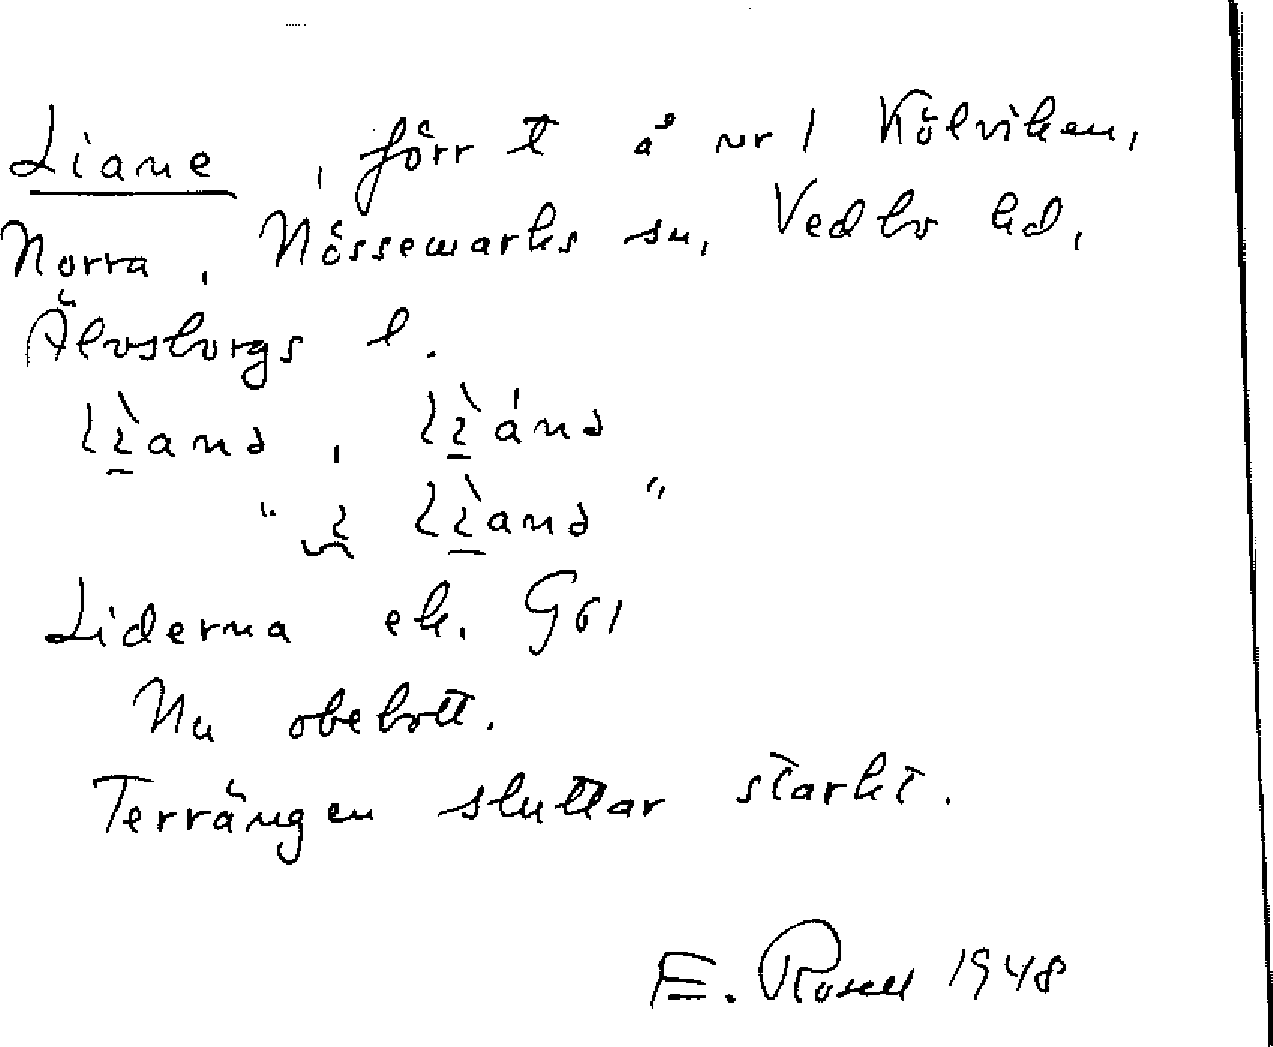 Liane, förr t å nr 1 Kölviken,
Norra, Nössemarks sn, Vedbo hd,
Älvsborgs l.
Liderna ek. G61
Nu obebott.
Terrängen sluttar starkt.
E. Rosell 1948